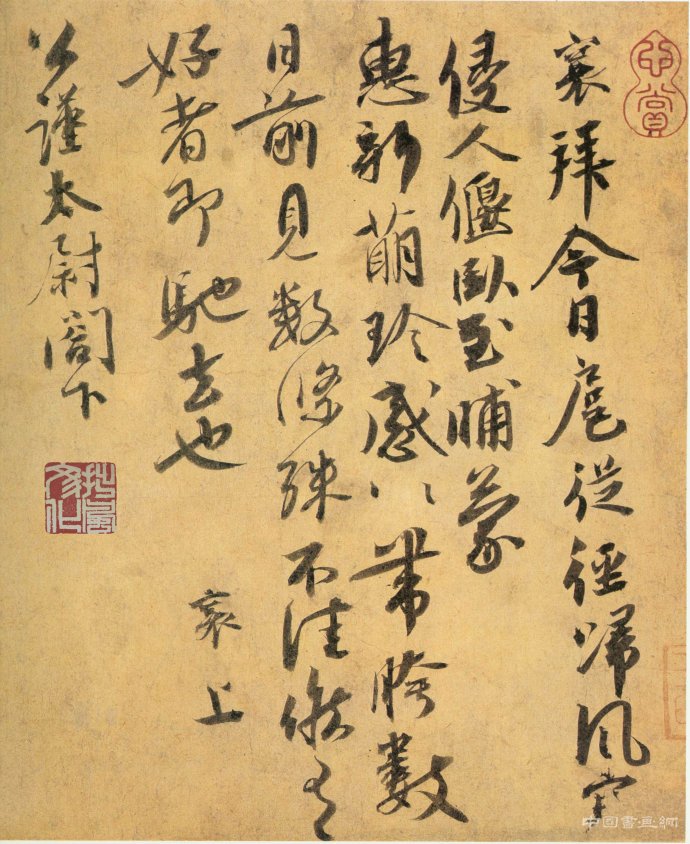 襄拜今日扈從徑歸風寒
侵人偃臥至晡蒙
惠新萠珍感〻帶胯數
日前見數條殊不佳候有
好者即馳去也
襄上
公謹太尉閤下
中国書画網